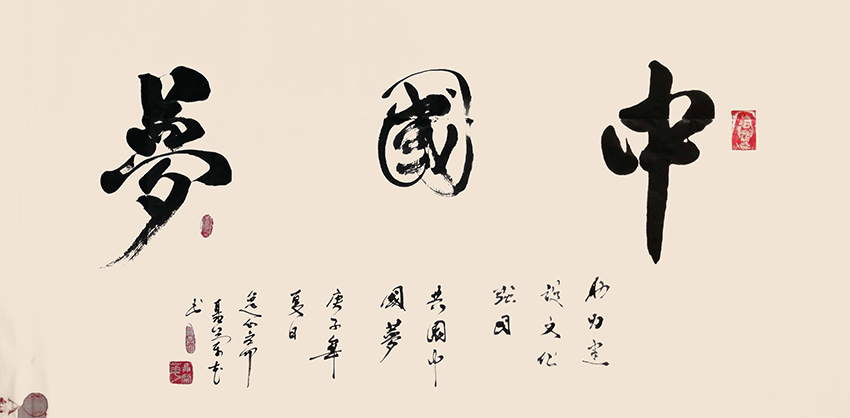 中國夢
力建
設文化
強國
共圓中
國夢
庚子年
夏日